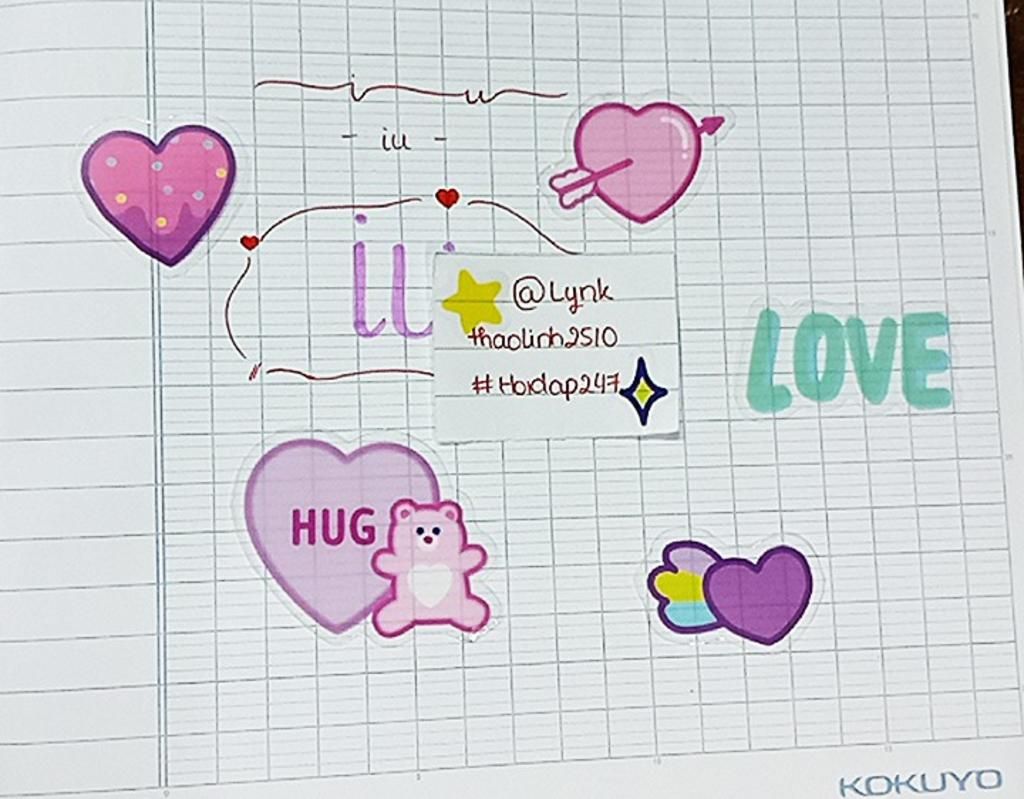 i u
- iu -
iu
@Lynk
thaolinh2510
#Hoidap247
LOVE
HUG
KOKUYO